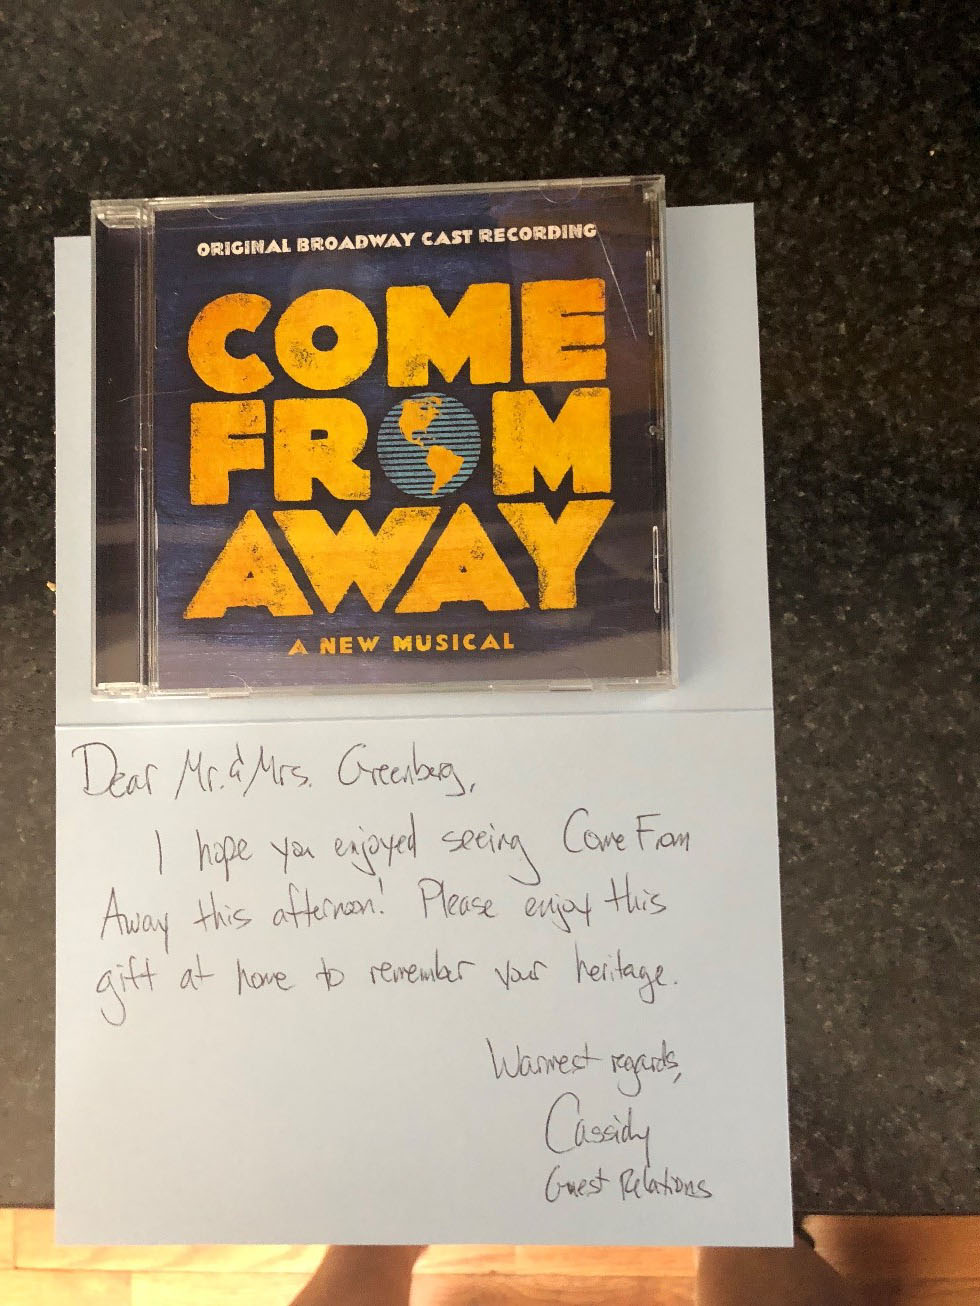 ORIGINAL BROADWAY CAST RECORDING
COME
FROM
AWAY
A NEW MUSICAL
Dear Mr. & Mrs. Greenberg,
I hope you enjoyed seeing Come From
Away this afternoon! Please enjoy this
gift at home to remember your heritage.
Warmest regards,
Cassidy
Guest Relations